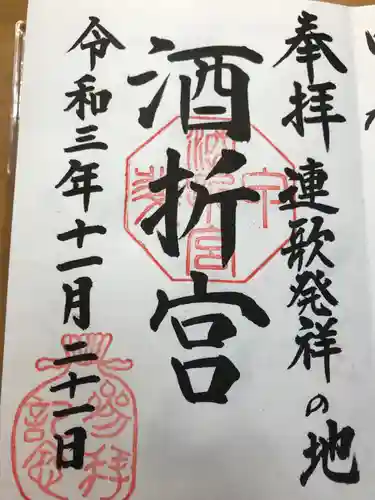 奉拝 連歌発祥の地
酒折宮
令和三年十一月二十一日
参拝
記念